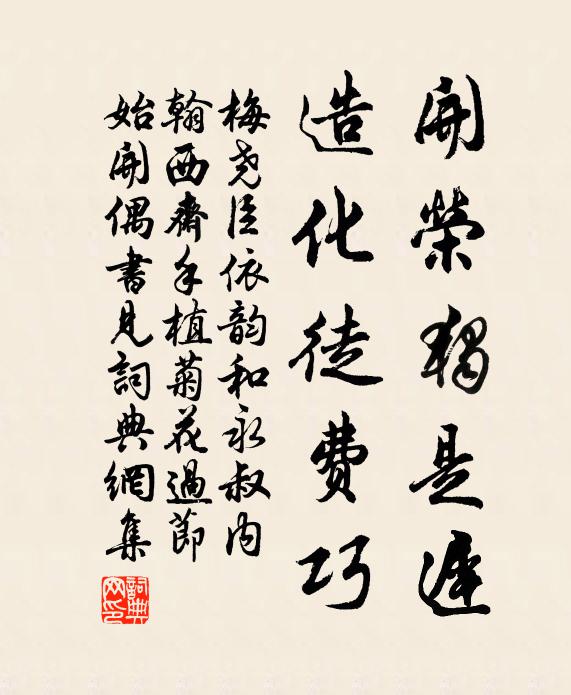 開榮獨是遲
造化徒費巧
梅尧臣依韵和永叔内
翰西齋手植菊花過節
始開偶書見詞典網集
詞典网印